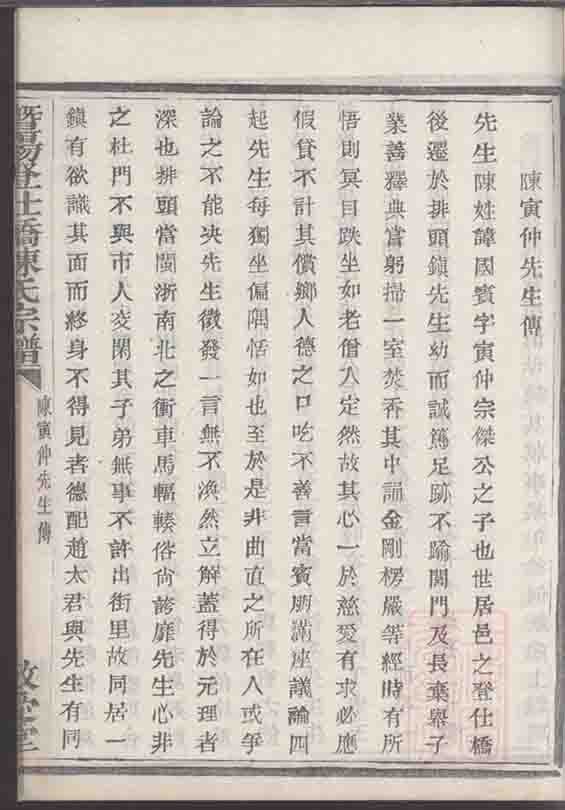 陳寅仲先生傳
先生陳姓諱國賓字寅仲宗傑公之子也世居邑之登仕橋
後遷於排頭鎮先生幼而誠篤足跡不踰閫門及長棄舉子
業善釋典嘗躬掃一室焚香其中誦金剛楞嚴等經時有所
悟則冥目趺坐如老僧入定然故其心一於慈愛有求必應
假貸不計其償鄉人德之口吃不善言當賓朋滿座議論四
起先生每獨坐偏隅恬如也至於是非曲直之所在人或爭
論之不能决先生徵發一言無不渙然立解蓋得於元理者
深也排頭當閩浙南北之衝車馬輻輳俗尙誇靡先生心非
之杜門不與市人交閑其子弟無事不許出街里故同居一
鎮有欲識其面而終身不得見者德配趙太君與先生有同
暨陽登仕橋陳氏宗譜
陳寅仲先生傳